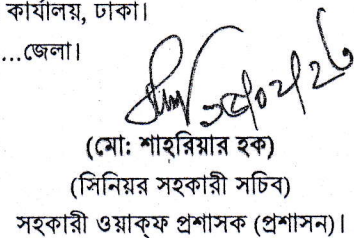 কার্যালয়, ঢাকা।
...জেলা।
(মো: শাহরিয়ার হক)
(সিনিয়র সহকারী সচিব)
সহকারী ওয়াক্ফ প্রশাসক (প্রশাসন)।